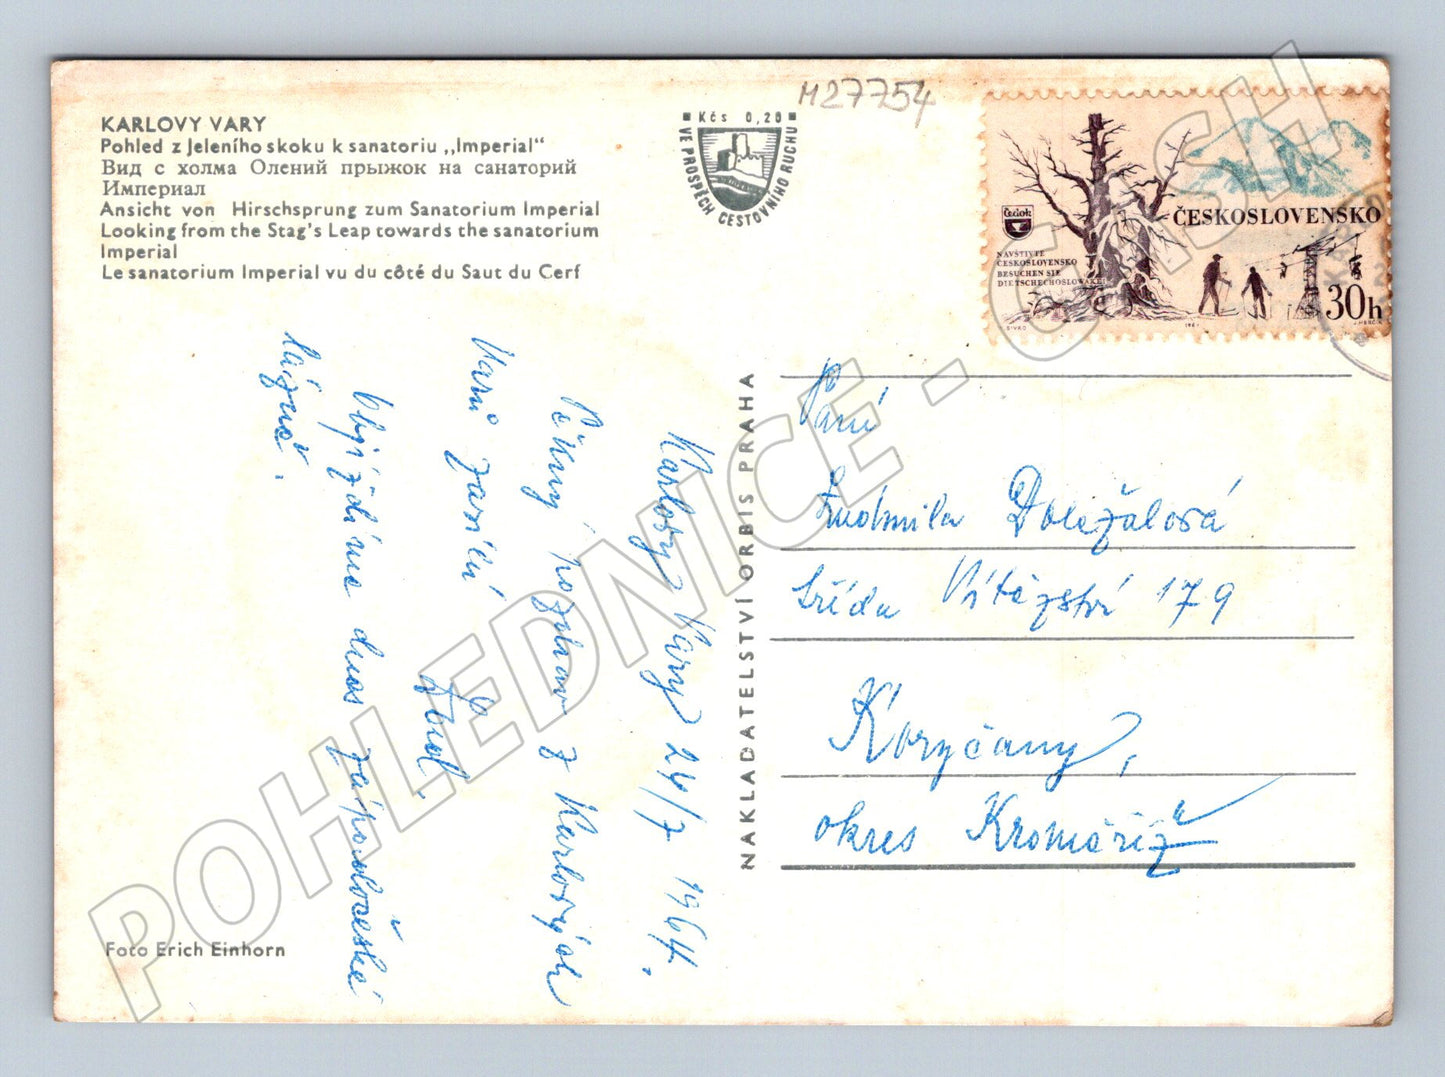 KARLOVY VARY
Pohled z Jeleního skoku k sanatoriu „Imperial“
Вид с холма Олений прыжок на санаторий
Империал
Ansicht von Hirschsprung zum Sanatorium Imperial
Looking from the Stag's Leap towards the sanatorium
Imperial
Le sanatorium Imperial vu du côté du Saut du Cerf
Kčs 0,20
VE PROSPĚCH CESTOVNÍHO RUCHU
M27754
čedok
ČESKOSLOVENSKO
NAVŠTIVTE
ČESKOSLOVENSKO
BESUCHEN SIE
DIE TSCHECHOSLOWAKEI
30h
Karlovy Vary 24/7 1964.
Pěkný pozdrav z Karlových
Varů zasílá
Lud.
Objíždíme dnes západočeské
lázně.
NAKLADATELSTVÍ ORBIS PRAHA
Paní
Ludmila Doležalová
třída Vítězství 179
Koryčany,
okres Kroměříž
Foto Erich Einhorn
POHLEDNICE - CASH